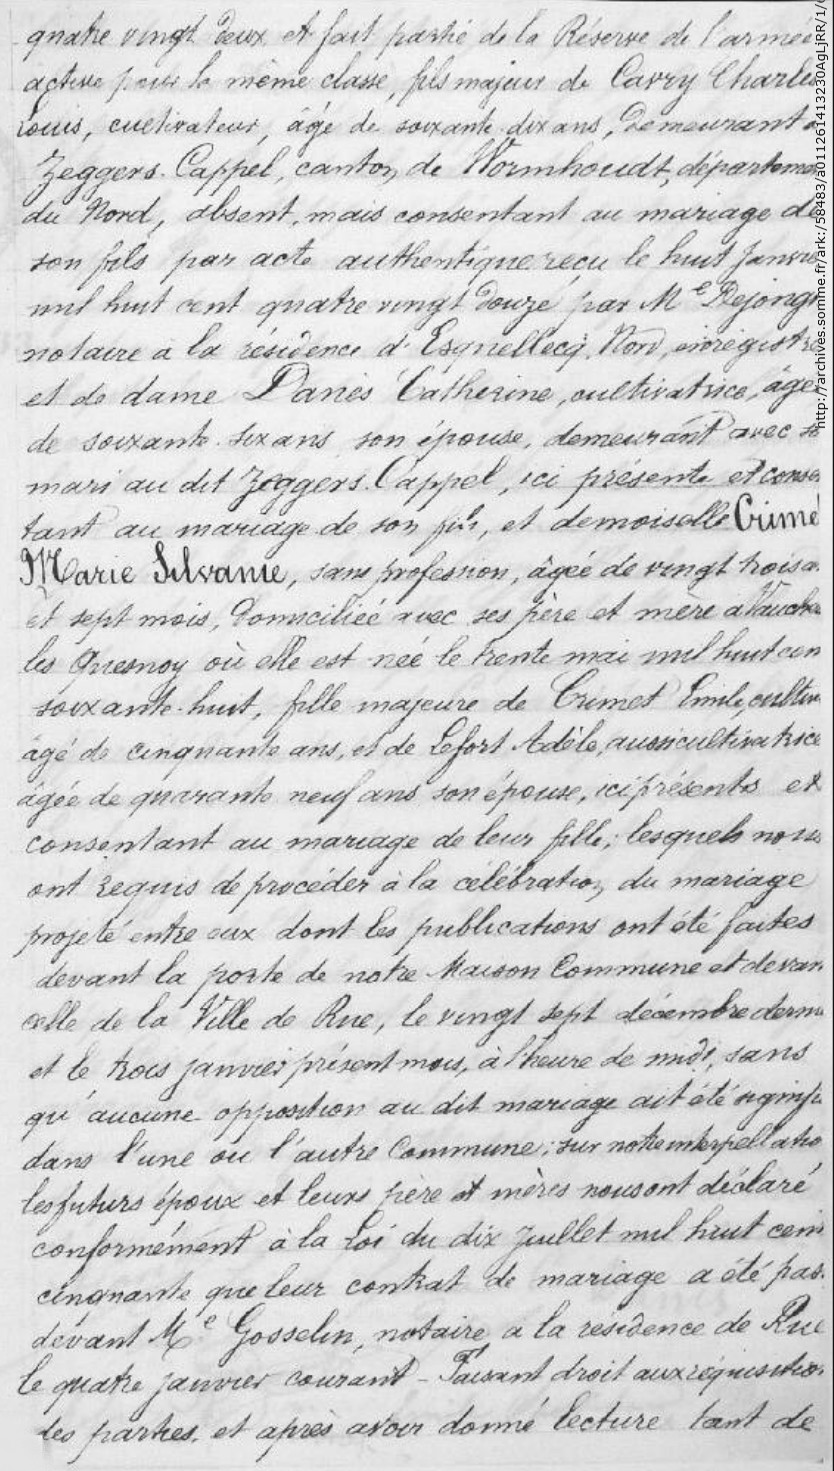 quatre vingt deux et fait partie de la Réserve de l'armée
active pour la même classe, fils majeur de Cavry Charles
Louis, cultivateur, âgé de soixante dix ans, demeurant à
Zeggers-Cappel, canton de Wormhoudt, départemen
du Nord, absent, mais consentant au mariage de
son fils par acte authentique reçu le huit Janvie
mil huit cent quatre vingt douze par Me Dejongh
notaire à la résidence d'Esquellecq, Nord, enregistré
et de dame Danès Catherine, cultivatrice, âgée
de soixante six ans son épouse, demeurant avec so
mari au dit Zeggers-Cappel, ici présente et conse
tant au mariage de son fils, et demoiselle Crime
Marie Silvanie, sans profession, âgée de vingt trois a
et sept mois, domiciliée avec ses père et mère à Vauche
les Quesnoy où elle est née le trente mai mil huit cen
soixante-huit, fille majeure de Crimet Emile, cultiv
âgé de cinquante ans, et de Lefort Adèle, aussi cultivatrice
âgée de quarante neuf ans son épouse, ici présents et
consentant au mariage de leur fille; lesquels nous
ont requis de procéder à la célébration du mariage
projeté entre eux dont les publications ont été faites
devant la porte de notre Maison Commune et devan
celle de la Ville de Rue, le vingt sept décembre derni
et le trois janvier présent mois, à l'heure de midi, sans
qu'aucune opposition au dit mariage ait été signifi
dans l'une ou l'autre Commune; sur notre interpellatio
les futurs époux et leurs père et mères nous ont déclaré
conformément à la Loi du dix Juillet mil huit cent
cinquante que leur contrat de mariage a été pas
devant Me Gosselin, notaire a la résidence de Rue
le quatre janvier courant - Faisant droit aux réquisitio
des parties, et après avoir donné lecture tant de
http://archives.somme.fr/ark:/58483/a011261413230AgLjRR/1/